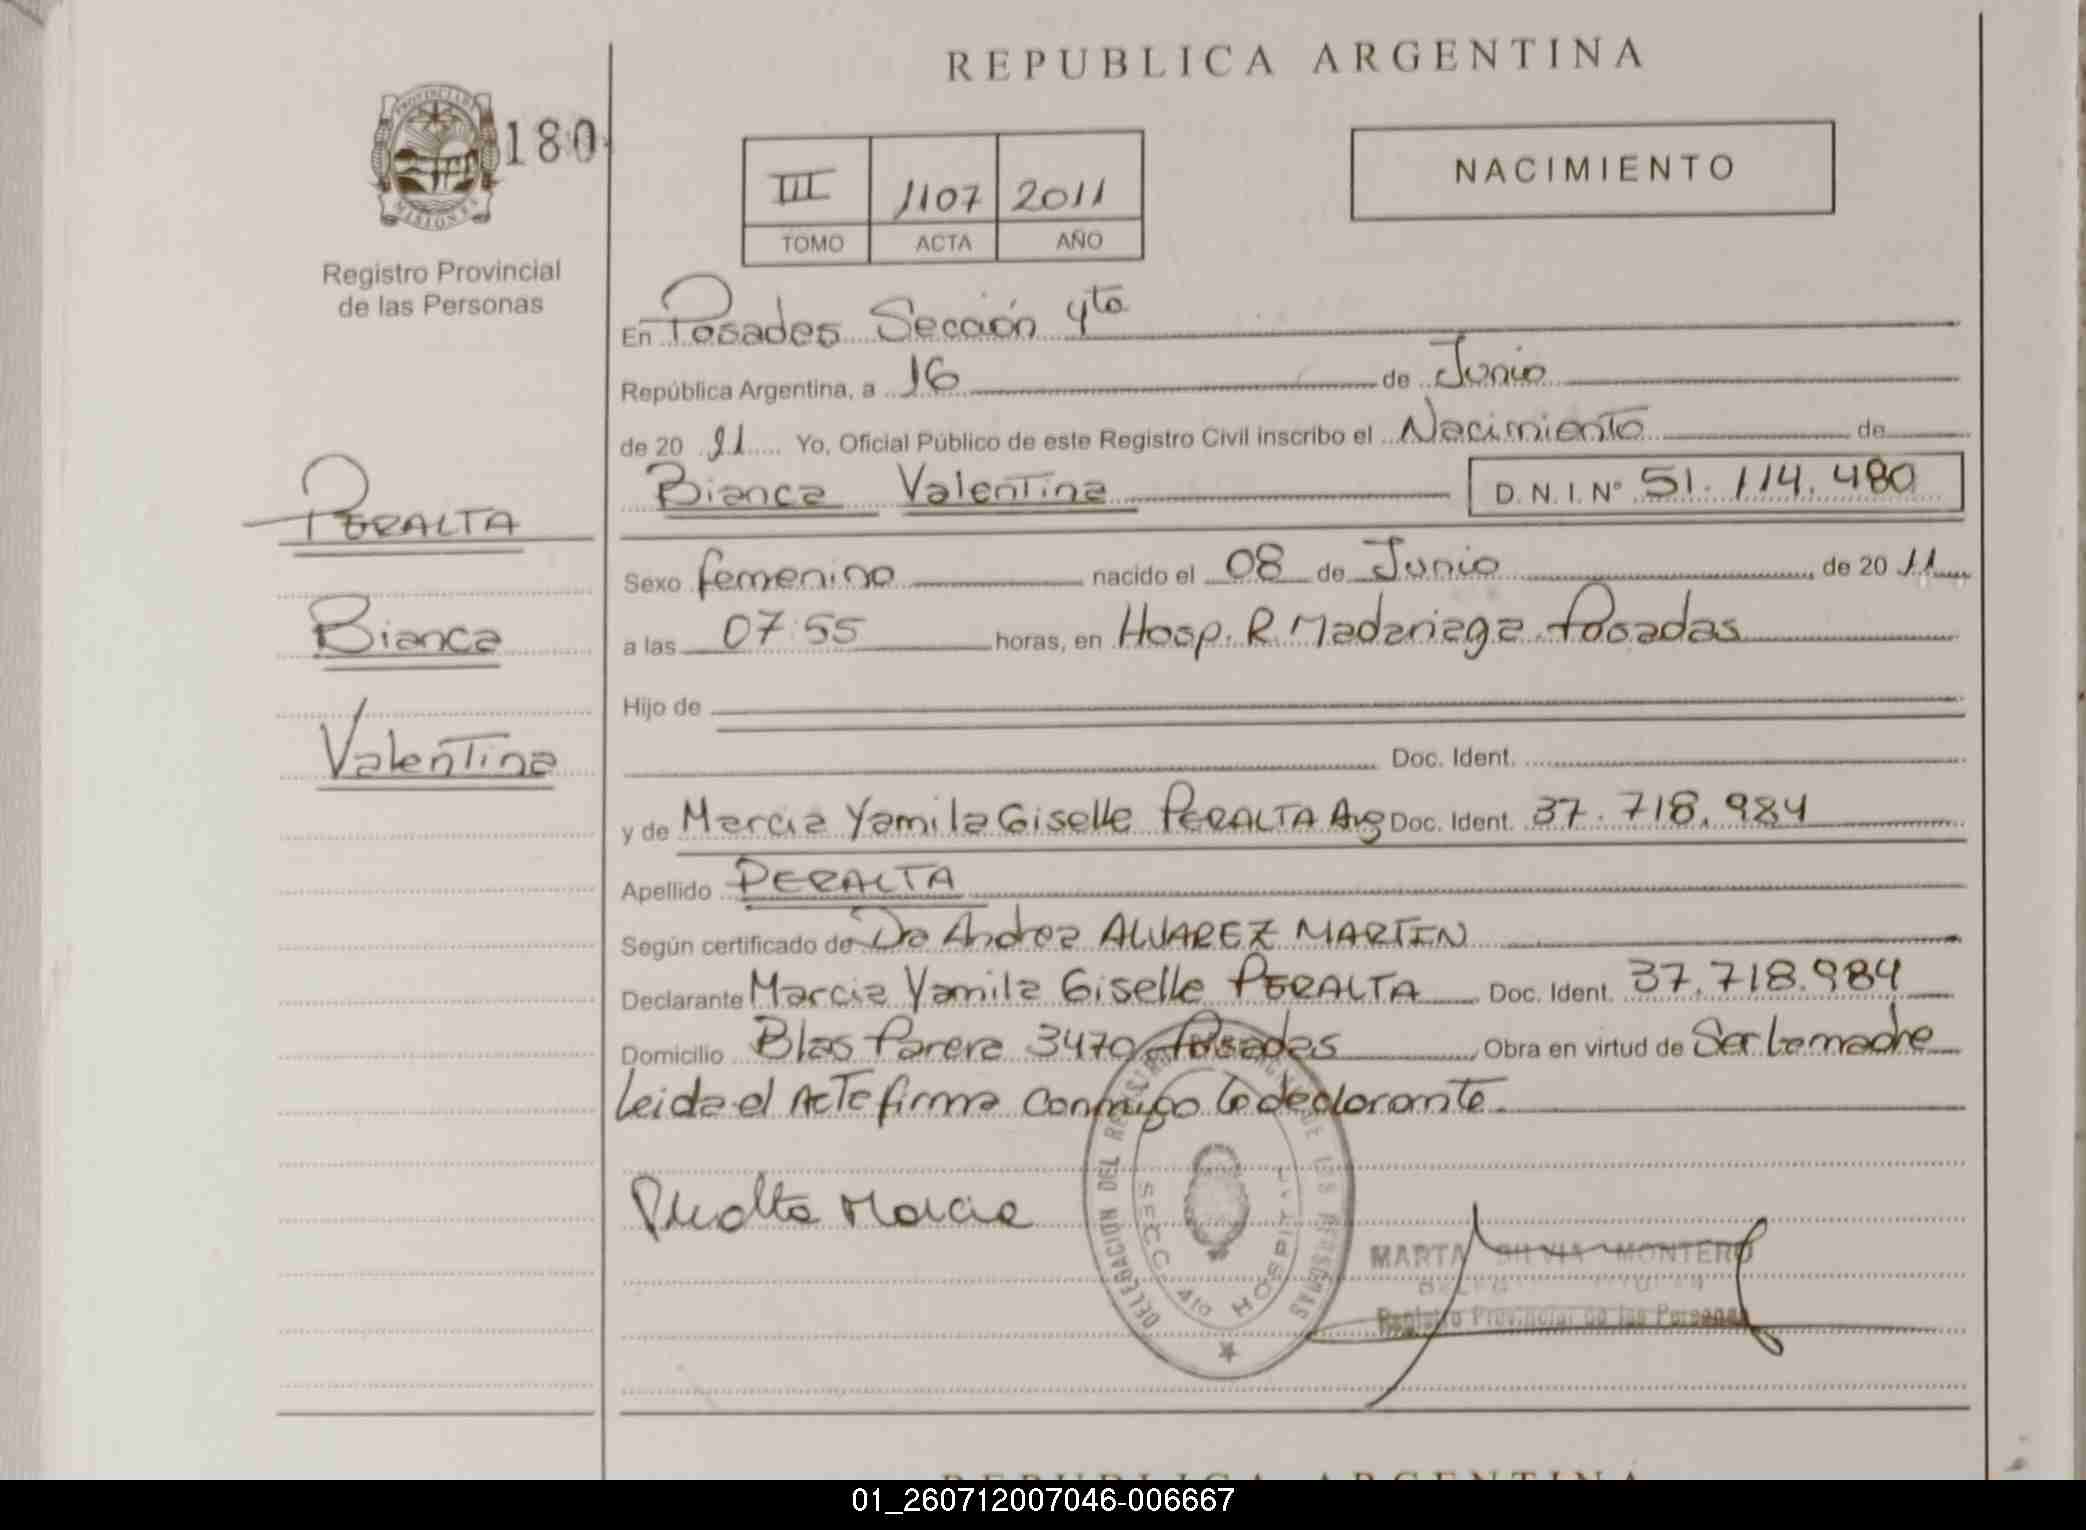 REPUBLICA ARGENTINA
PROVINCIA DE MISIONES
180
Registro Provincial
de las Personas
NACIMIENTO
III 1107 2011
TOMO ACTA AÑO
En Posadas Sección 4ta
República Argentina, a 16 de Junio
de 20 11 Yo, Oficial Público de este Registro Civil inscribo el Nacimiento de
Bianca Valentina D. N. I. N° 51.114.480
PERALTA
Bianca
Valentina
Sexo femenino nacido el 08 de Junio de 20 11
a las 07:55 horas, en Hosp. R Madariaga Posadas
Hijo de
Doc. Ident.
y de Marcia Yamila Giselle PERALTA Arg Doc. Ident. 37.718.984
Apellido PERALTA
Según certificado de Da Andrea ALVAREZ MARTIN
Declarante Marcia Yamila Giselle PERALTA Doc. Ident. 37.718.984
Domicilio Blas Parera 3470 Posadas Obra en virtud de Ser la madre
Leida el Acta firma conmigo la declarante
Peralta Marcia
DELEGACIÓN DEL REGISTRO DE LAS PERSONAS
SECC. 4ta HOSPITAL
MARTA SILVIA MONTERO
Registro Provincial de las Personas
REPUBLICA ARGENTINA
01_260712007046-006667